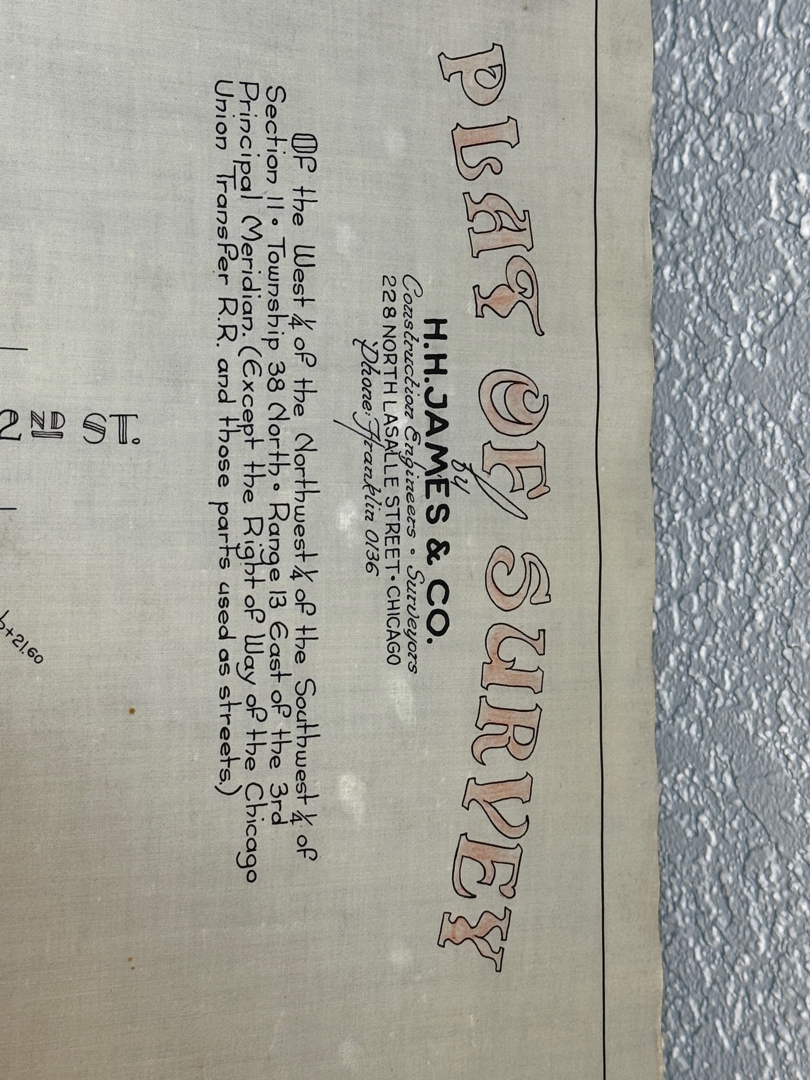 PLAT OF SURVEY
by
H.H.JAMES & CO.
Construction Engineers • Surveyors
228 NORTH LASALLE STREET • CHICAGO
Phone: Franklin 0136
Of the West ½ of the Northwest ¼ of the Southwest ¼ of
Section 11 • Township 38 North • Range 13 East of the 3rd
Principal Meridian. (Except the Right of Way of the Chicago
Union Transfer R.R. and those parts used as streets.)
2ND ST.
+21.60